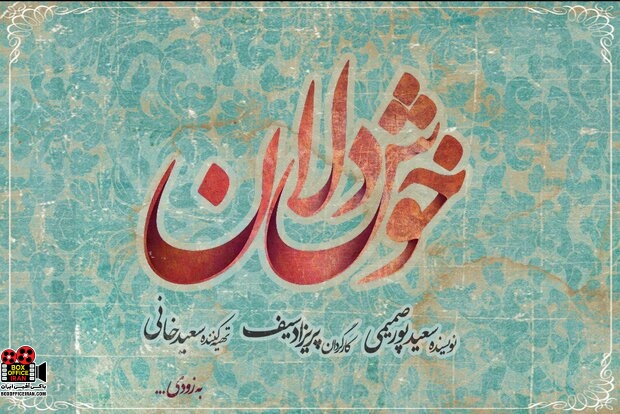 خوش‌دلان
نویسنده سعید پورصمیمی کارگردان پریزاد سیف تهیه‌کننده سعید خانی
به زودی...
BOX
OFFICE
IRAN
باکس آفیس ایران
BOXOFFICEIRAN.COM